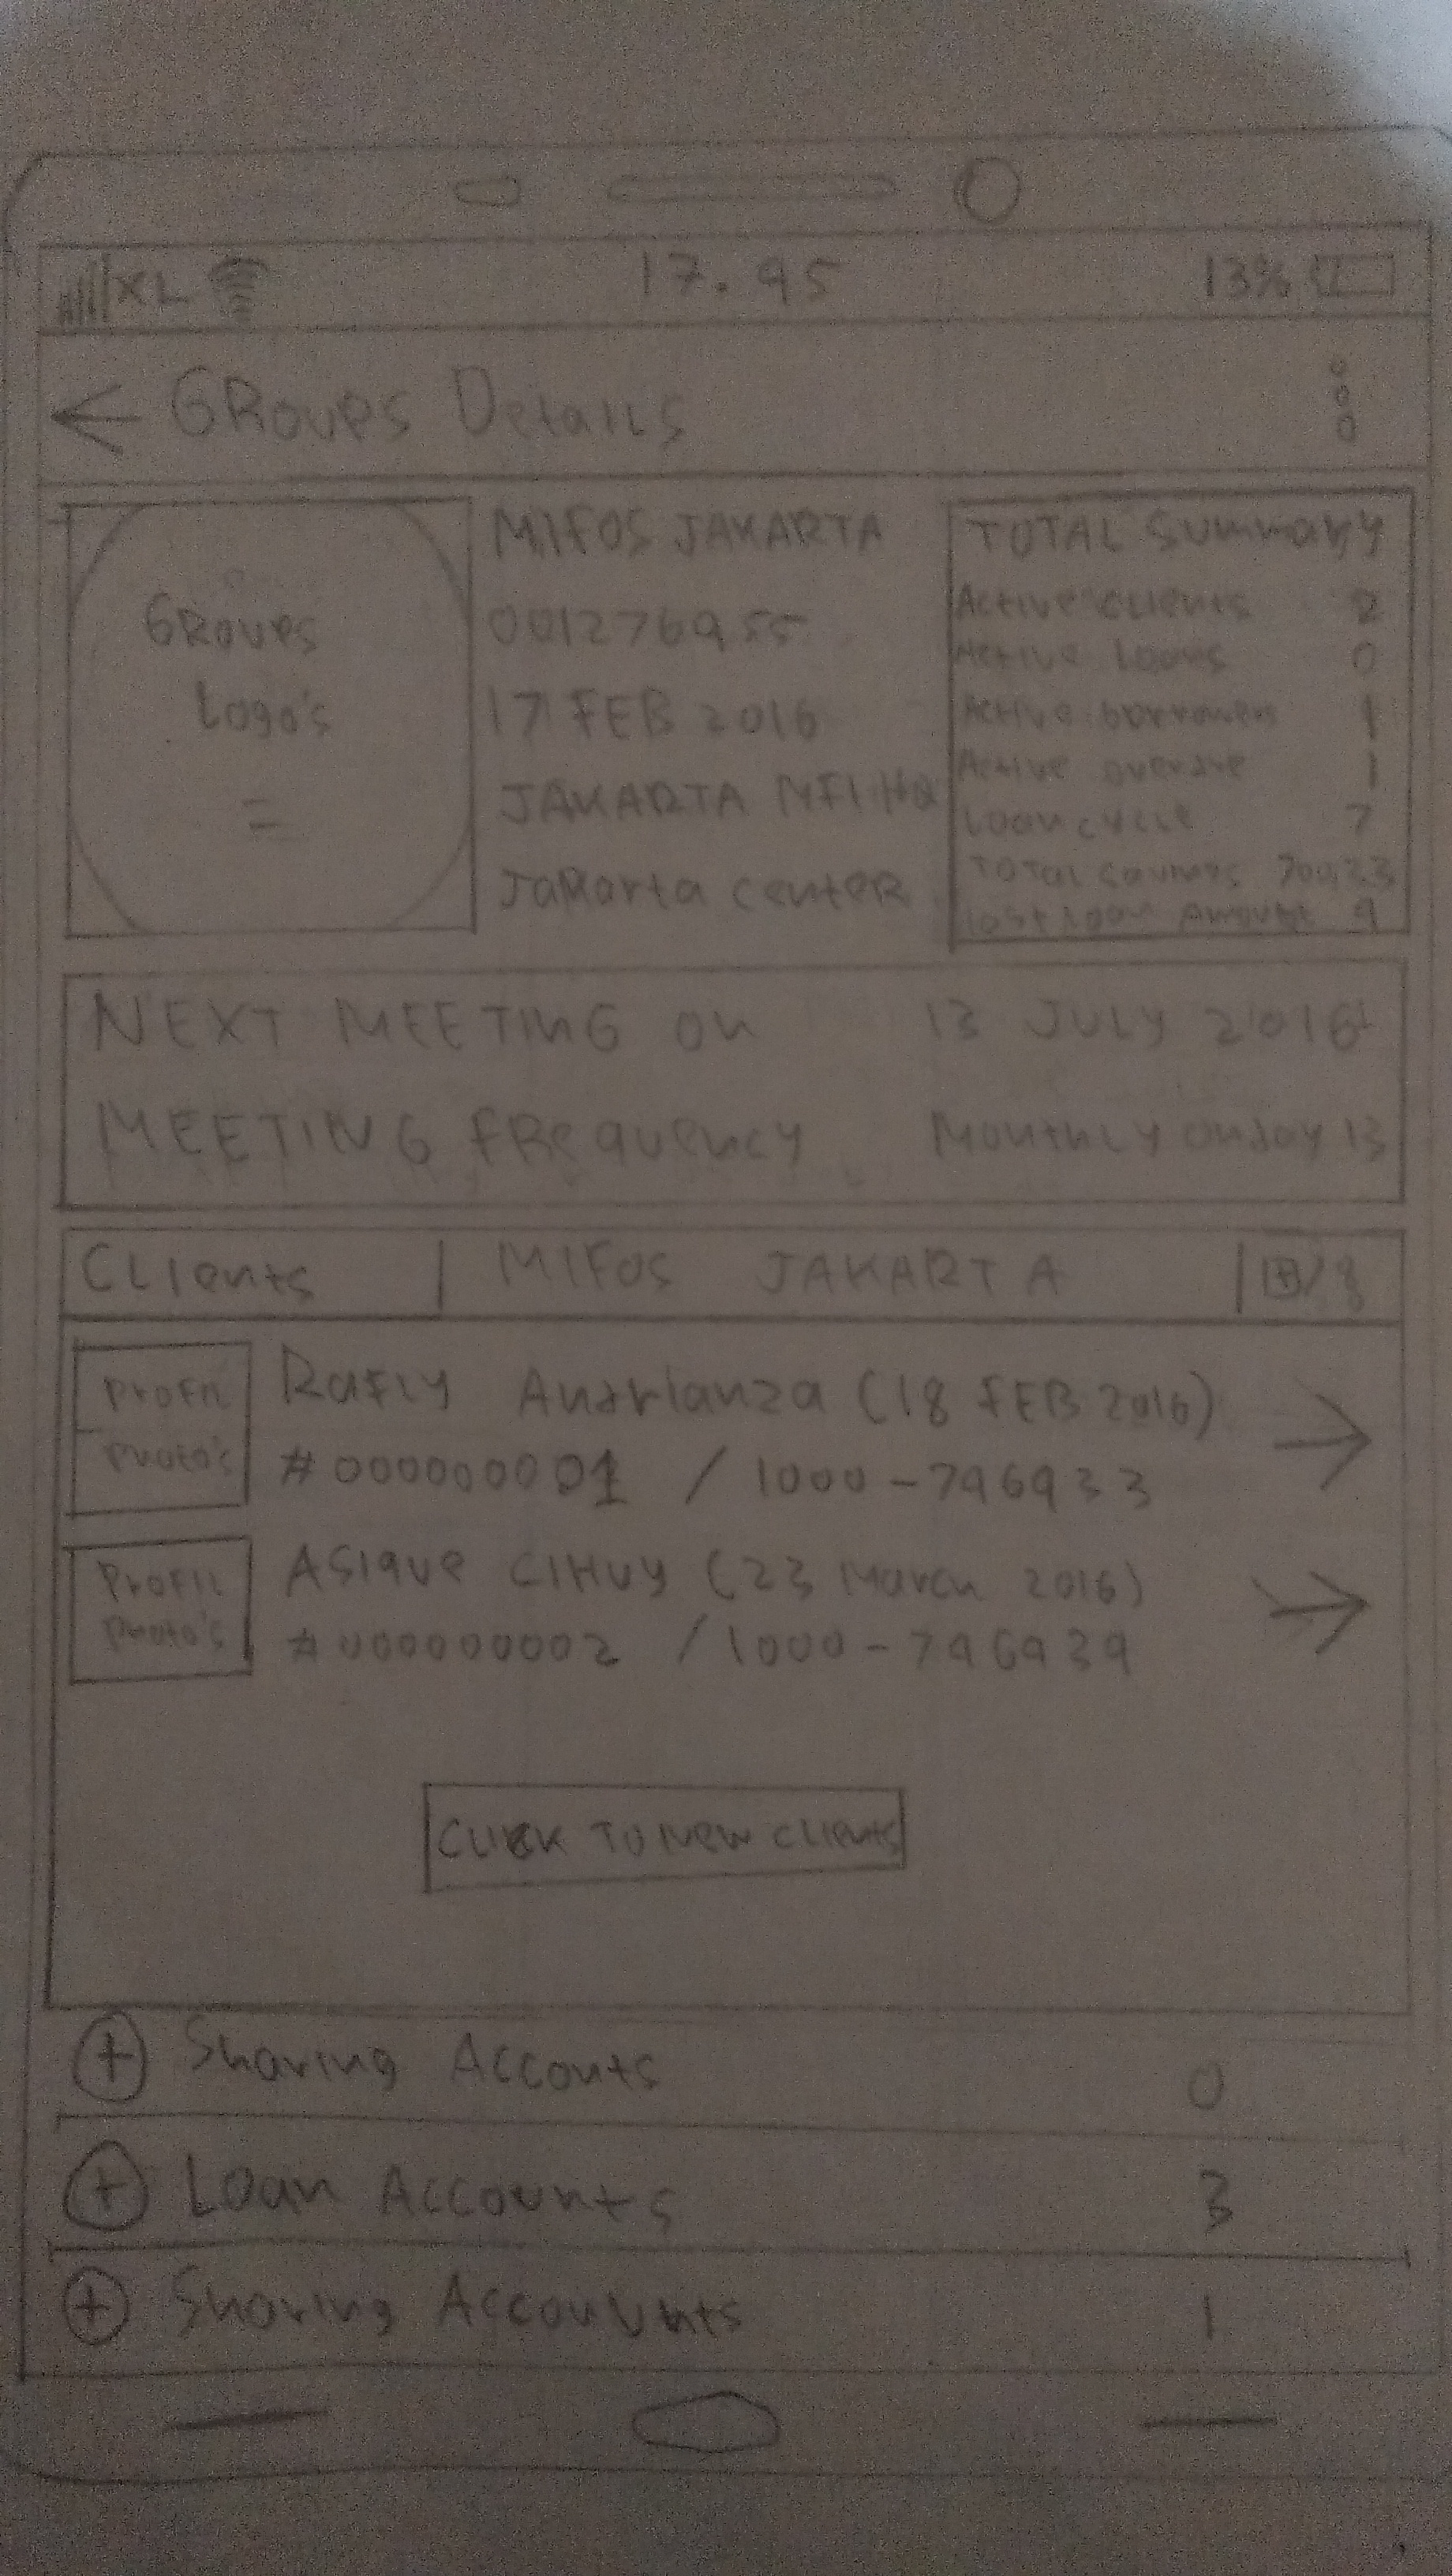 XL 17.45 13%
← GRoups Details
GRoups
Logo's
MIFOS JAKARTA
001276955
17 FEB 2016
JAKARTA MFI HQ
JaKarta center
TOTAL Summary
Active clients 2
Active loans 0
Active borrowers 1
Active overdue 1
Loan cycle 7
TOTAL savings
Last loan Amount 9
NEXT MEETING on 13 JULY 2016
MEETING fRequency Monthly on day 13
CLients MIFOS JAKARTA
Profil
Photo's
Rafly Andrianza (18 FEB 2016)
#000000001 / 1000-746933
Profil
Photo's
Asique CIHUY (23 March 2016)
#000000002 / 1000-746939
CLICK TO New CLients
Sharing Acconts 0
Loan Accounts 3
Sharing Accouunts 1